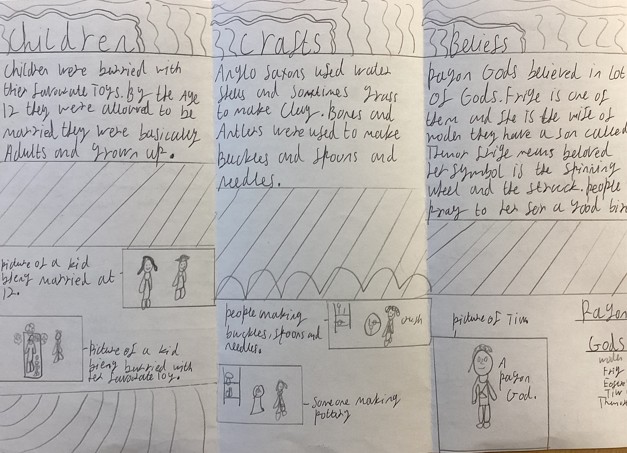 Children
Children were burried with
their favourate Toys. By the Age
12 they were allowed to be
married they were basically
Adults and grown up.
picture of a kid
bieng married at
12.
picture of a kid
bieng burried with
her favourate toy.
Crafts
Anglo saxons used water
shells and sometimes grass
to make Clay. Bones and
Antlers were used to make
Buckles and spoons and
needles.
people making
buckles, spoons and
needles.
Someone making
pottery
Beliefs
pagon Gods believed in lot
of Gods. Frige is one of
them and she is the wife of
woden they have a son called
Thunor frige means beloved
her symbol is the spinning
wheel and the
people
pray to her for a good
picture of Tiw
A
pagon
God.
Pagon
Gods
woden
Frig
Tiw